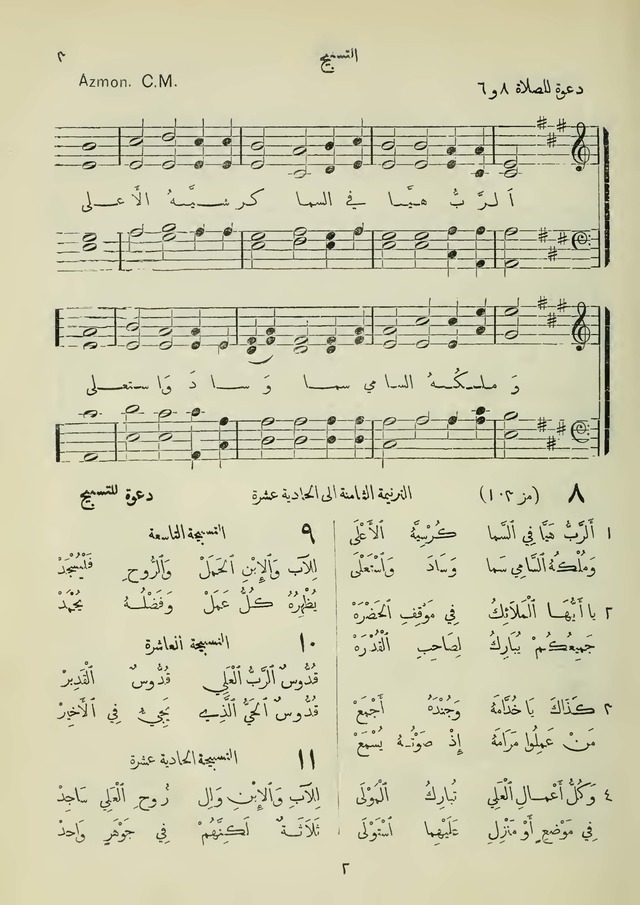 التسبيح ٢
Azmon. C.M. دعوة للصلاة ٨ و ٦
اَلرَّبُّ هَيَّا فِي السما كرسيَّهُ الأَعـلى
وَ ملـكـهُ السامي سما وَ سـا دَ وَا ستعـلى
٨ (مز ١٠٣) الترنيمة الثامنة الى الحادية عشرة دعوة للتسبيح
١ أَلرَّبُّ هَيَّا فِي ٱلسَّمَا كُرْسِيَّهُ ٱلْأَعْلَى
وَمُلْكُهُ ٱلسَّامِي سَمَا وَسَادَ وَٱسْتَعْلَى
٢ يا أَيُّهَا ٱلْمَلَائِكُ فِي مَوْقِفِ ٱلْحَضْرَهْ
جَمِيعُكُمْ يُبَارِكُ لِصَاحِبِ ٱلْقُدْرَهْ
٣ كَذَاكَ يَا خُدَّامَهُ وَجُنْدَهُ أَجْمَعْ
مَنْ عَمِلُوا مَرَامَهُ إِذْ صَوْتُهُ يُسْمَعْ
٤ وَكُلُّ أَعْمَالِ ٱلْعَلِي تُبَارِكُ ٱلْمَوْلَى
فِي مَوْضِعٍ أَوْ مَنْزِلِ عَلَيْهِمَا ٱسْتَوْلَى
٩ التسبيحة التاسعة
لِلْآبِ وَٱلْإِبْنِ ٱلْحَمَلْ وَٱلرُّوحِ فَلْيُسْجَدْ
يُظْهِرُهُ كُلُّ عَمَلْ وَفَضْلُهُ يُحْمَدْ
١٠ التسبيحة العاشرة
قُدُّوسٌ ٱلرَّبُّ ٱلْعَلِي قُدُّوسٌ ٱلْقَدِيرْ
قُدُّوسٌ ٱلْحَيُّ ٱلَّذِي يَجِيءُ فِي ٱلْأَخِيرْ
١١ التسبيحة الحادية عشرة
لِلْآبِ وَٱلْإِبْنِ وَلِلْ رُوحِ ٱلْعَلِي سَاجِدْ
ثَلَاثَةٌ لَكِنَّهُمْ فِي جَوْهَرٍ وَاحِدْ
٢